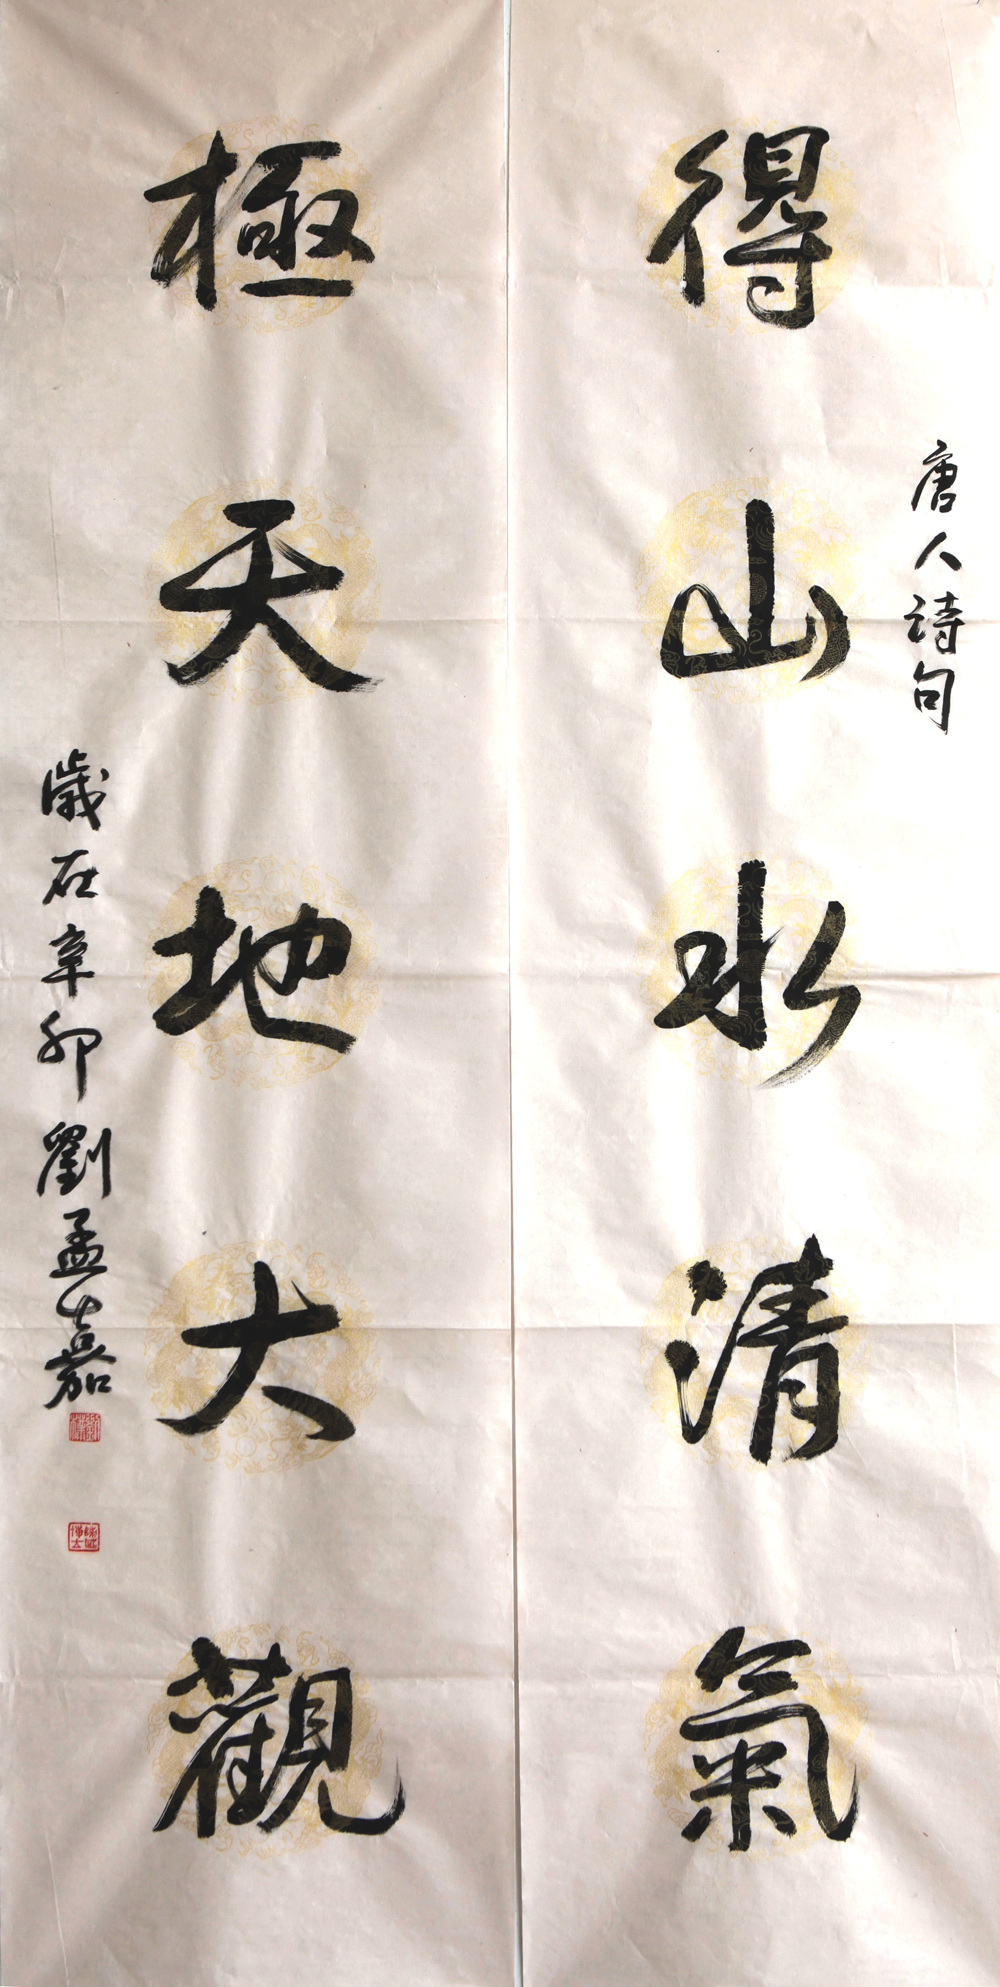 唐人詩句
得山水清氣
極天地大觀
歲在辛卯劉孟嘉